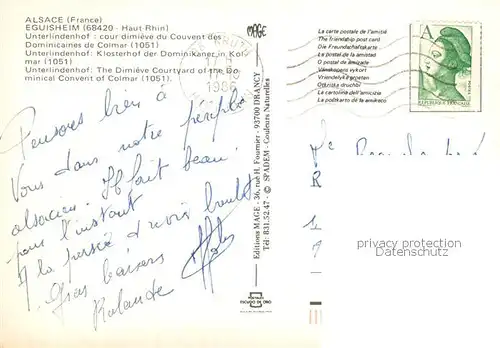 ALSACE (France)
EGUISHEIM (68420 - Haut-Rhin)
Unterlindenhof : cour dimière du Couvent des
Dominicaines de Colmar (1051)
Unterlindenhof: Klosterhof der Dominikaner in Kol
mar (1051)
Unterlindenhof: The Dimière Courtyard of the Do
minical Convent of Colmar (1051).
MAGE
17 H
1986
Pensons bien à
Vous dans notre périple
alsacien. Il fait beau
pour l'instant
à la
Gros baisers
Rolande
Editions MAGE - 36, rue H. Fournier - 93700 DRANCY
Tél: 831.52.47 - © SPADEM - Couleurs Naturelles
La carte postale de l'amitié
The friendship post card
Die Freundschaftskarte
La postal de la amistad
O postal de amizade
Vriendelijke groeten
La cartolina dell'amicizia
A
REPUBLIQUE FRANÇAISE
R
privacy protection
Datenschutz